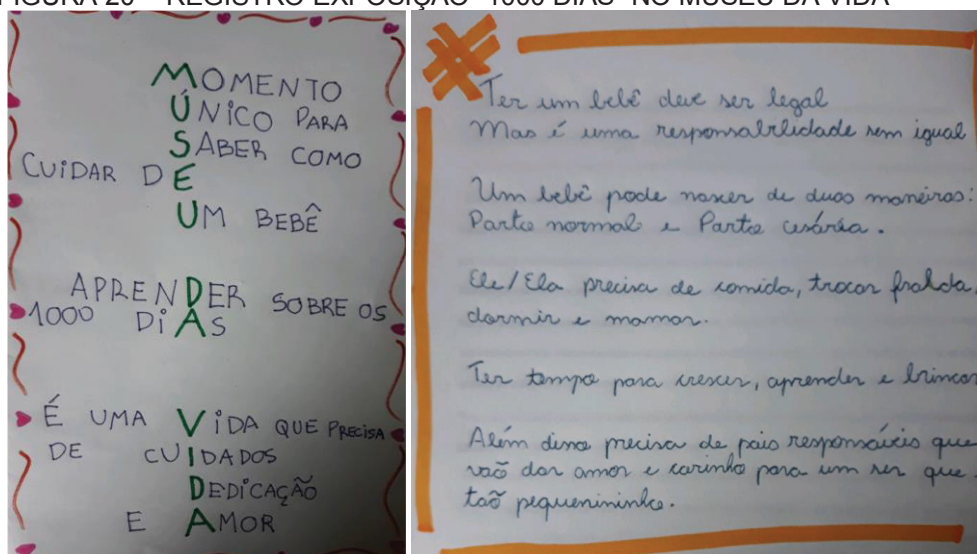 FIGURA 20 – REGISTRO EXPOSIÇÃO "1000 DIAS" NO MUSEU DA VIDA
MOMENTO
ÚNICO PARA
SABER COMO
CUIDAR DE
UM BEBÊ
APRENDER SOBRE OS
1000 DIAS
É UMA VIDA QUE PRECISA
DE CUIDADOS
DEDICAÇÃO
E AMOR
Ter um bebê deve ser legal
Mas é uma responsabilidade sem igual
Um bebê pode nascer de duas maneiras:
Parto normal e Parto cesárea.
Ele/Ela precisa de comida, trocar fralda,
dormir e mamar.
Ter tempo para crescer, aprender e brincar
Além disso precisa de pais responsáveis que
vaõ dar amor e carinho para um ser que
taõ pequenininho.